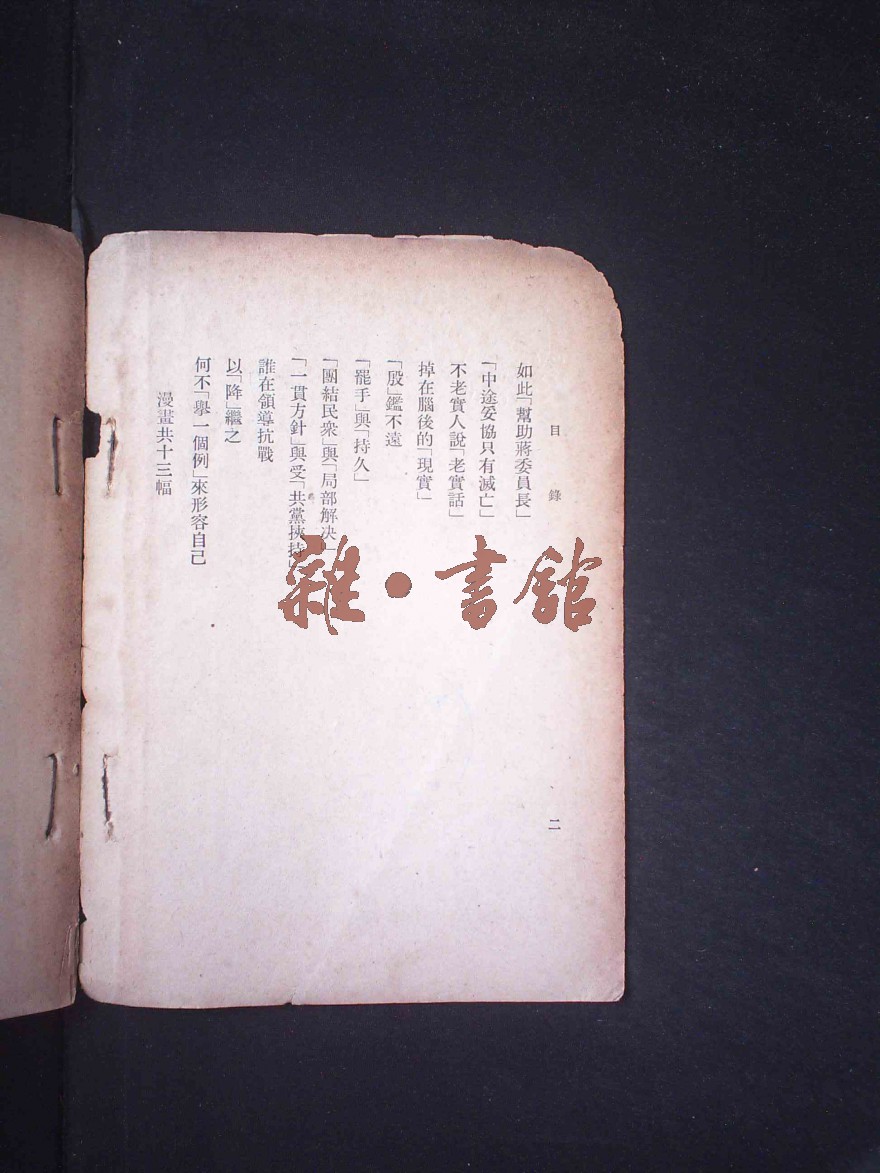 目錄
二
如此「幫助蔣委員長」
「中途妥協只有滅亡」
不老實人說「老實話」
掉在腦後的「現實」
「殷」鑑不遠
「罷手」與「持久」
「團結民衆」與「局部解決」
「一貫方針」與受「共黨挾持」
誰在領導抗戰
以「降」繼之
何不「舉一個例」來形容自己
漫畫共十三幅
雜·書館